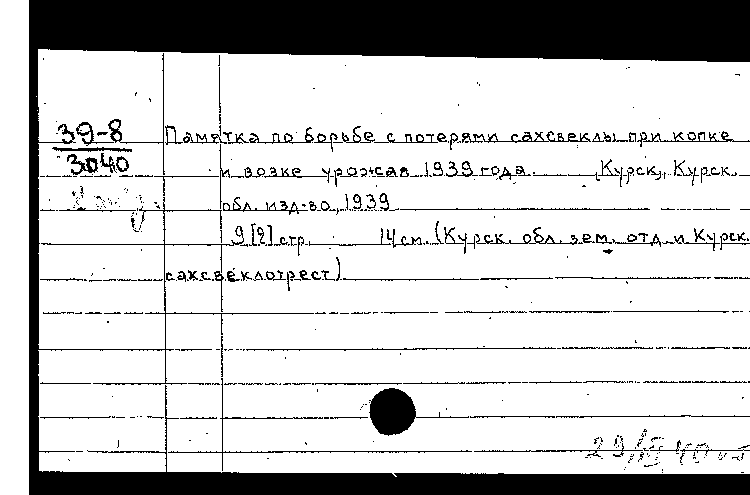 39-8
3040
Памятка по борьбе с потерями сахсвеклы при копке
и возке урожая 1939 года. [Курск], Курск.
обл. изд-во, 1939
9 [2] стр. 14 см. (Курск. обл. зем. отд. и Курск.
сахсвеклотрест)